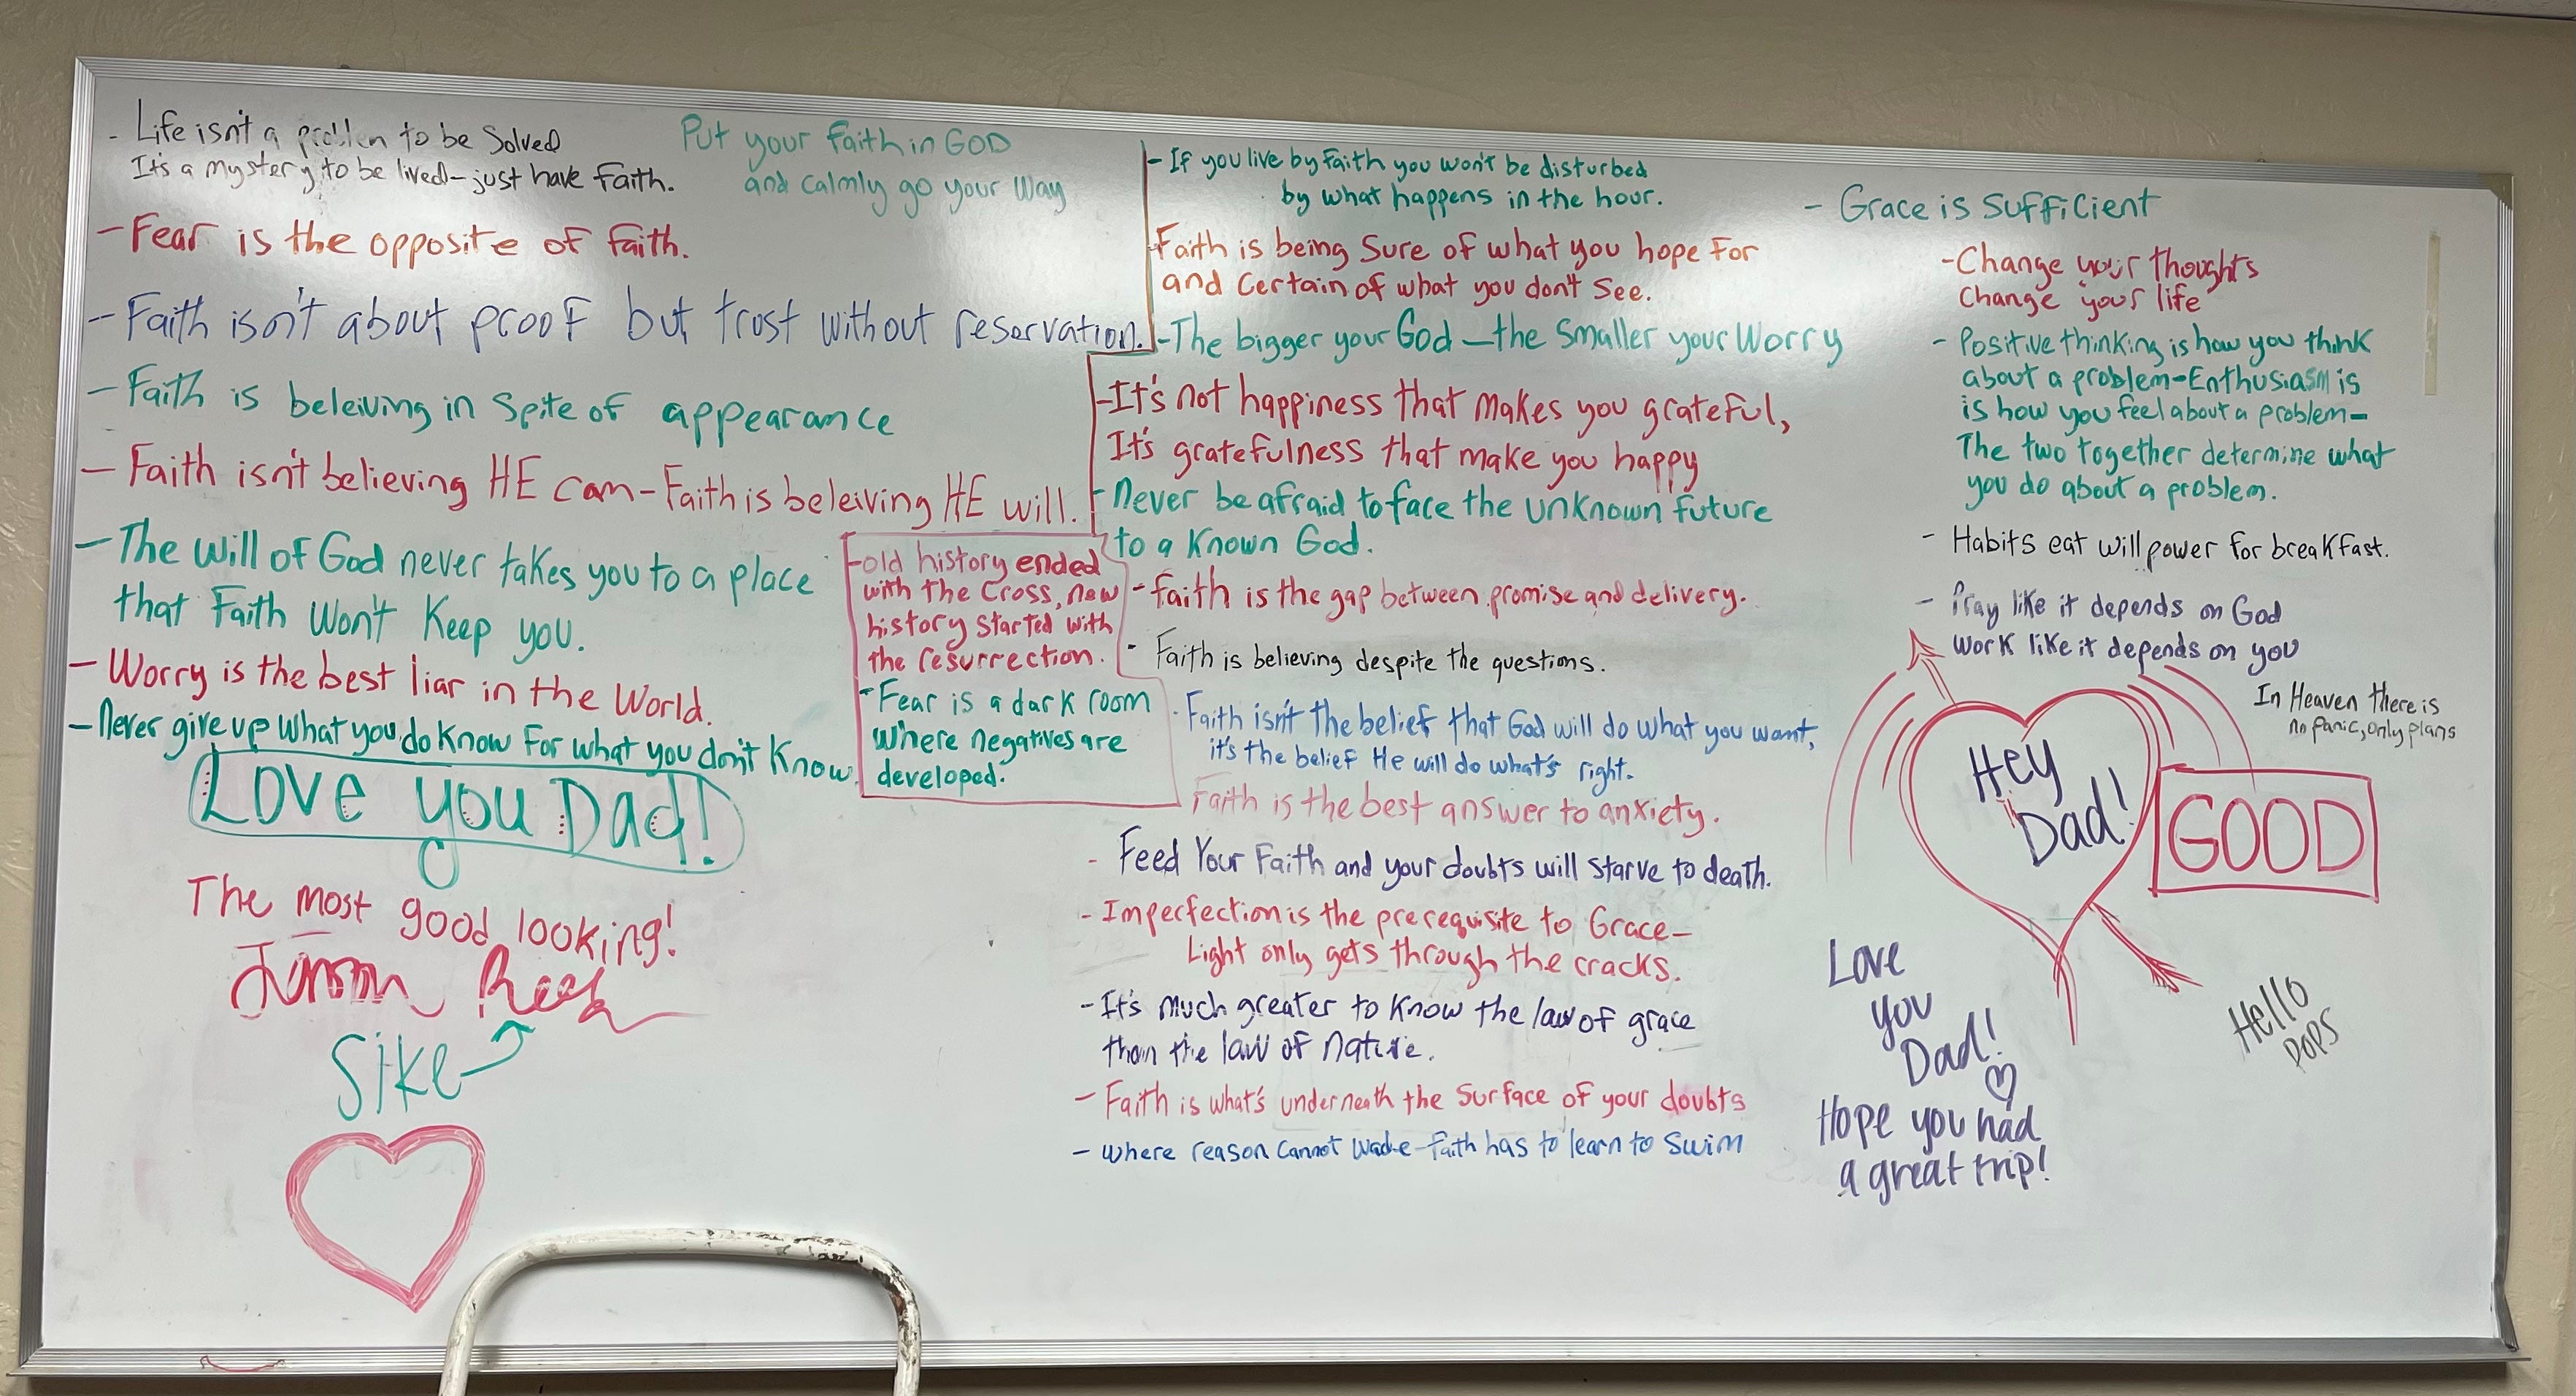 - Life isn't a problem to be Solved
It's a mystery to be lived - just have faith.
Put your Faith in GOD
and calmly go your way
- Fear is the opposite of faith.
- Faith isn't about proof but trust without reservation.
- Faith is beleiving in spite of appearance
- Faith isn't believing HE can - Faith is beleiving HE will.
- The will of God never takes you to a place
that Faith Won't Keep you.
- Worry is the best liar in the World.
- Never give up what you do know for what you don't know.
Love you Dad!
The most good looking!
Sike
- old history ended
with the Cross, new
history started with
the resurrection.
- Fear is a dark room
where negatives are
developed.
- If you live by faith you won't be disturbed
by what happens in the hour.
Faith is being Sure of what you hope For
and Certain of what you don't see.
- The bigger your God - the smaller your Worry
- It's not happiness that makes you grateful,
It's gratefulness that make you happy
- Never be afraid to face the unknown future
to a known God.
- faith is the gap between promise and delivery.
- Faith is believing despite the questions.
- Faith isn't the belief that God will do what you want,
it's the belief He will do what's right.
Faith is the best answer to anxiety.
- Feed Your Faith and your doubts will starve to death.
- Imperfection is the prerequisite to Grace -
Light only gets through the cracks.
- It's much greater to know the law of grace
than the law of nature.
- Faith is what's underneath the surface of your doubts
- where reason cannot wade - faith has to learn to swim
- Grace is sufficient
- Change your thoughts
Change your life
- Positive thinking is how you think
about a problem - Enthusiasm is
is how you feel about a problem -
The two together determine what
you do about a problem.
- Habits eat will power for breakfast.
- Pray like it depends on God
work like it depends on you
In Heaven there is
no panic, only plans
Hey
Dad!
GOOD
Love
you
Dad!
Hope you had
a great trip!
Hello
POPS